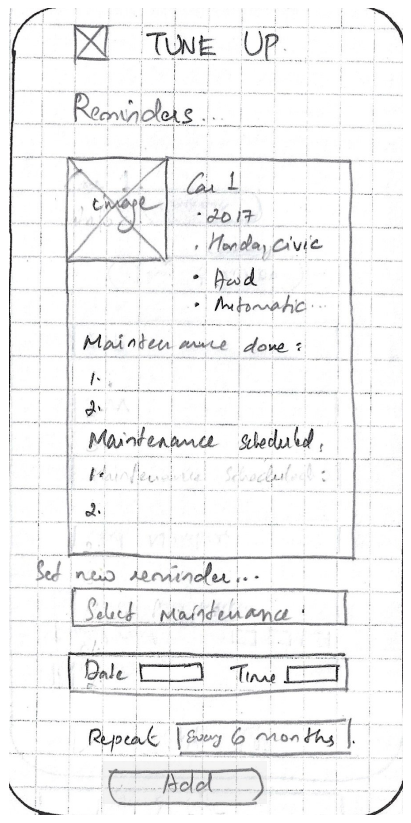 TUNE UP
Reminders...
image
Car 1
• 2017
• Honda, Civic
• Awd
• Automatic...
Maintenance done:
1.
2.
Maintenance scheduled,
1. Maintenance scheduled:
2.
Set new reminder...
Select Maintenance.
Date Time
Repeat Every 6 months.
Add